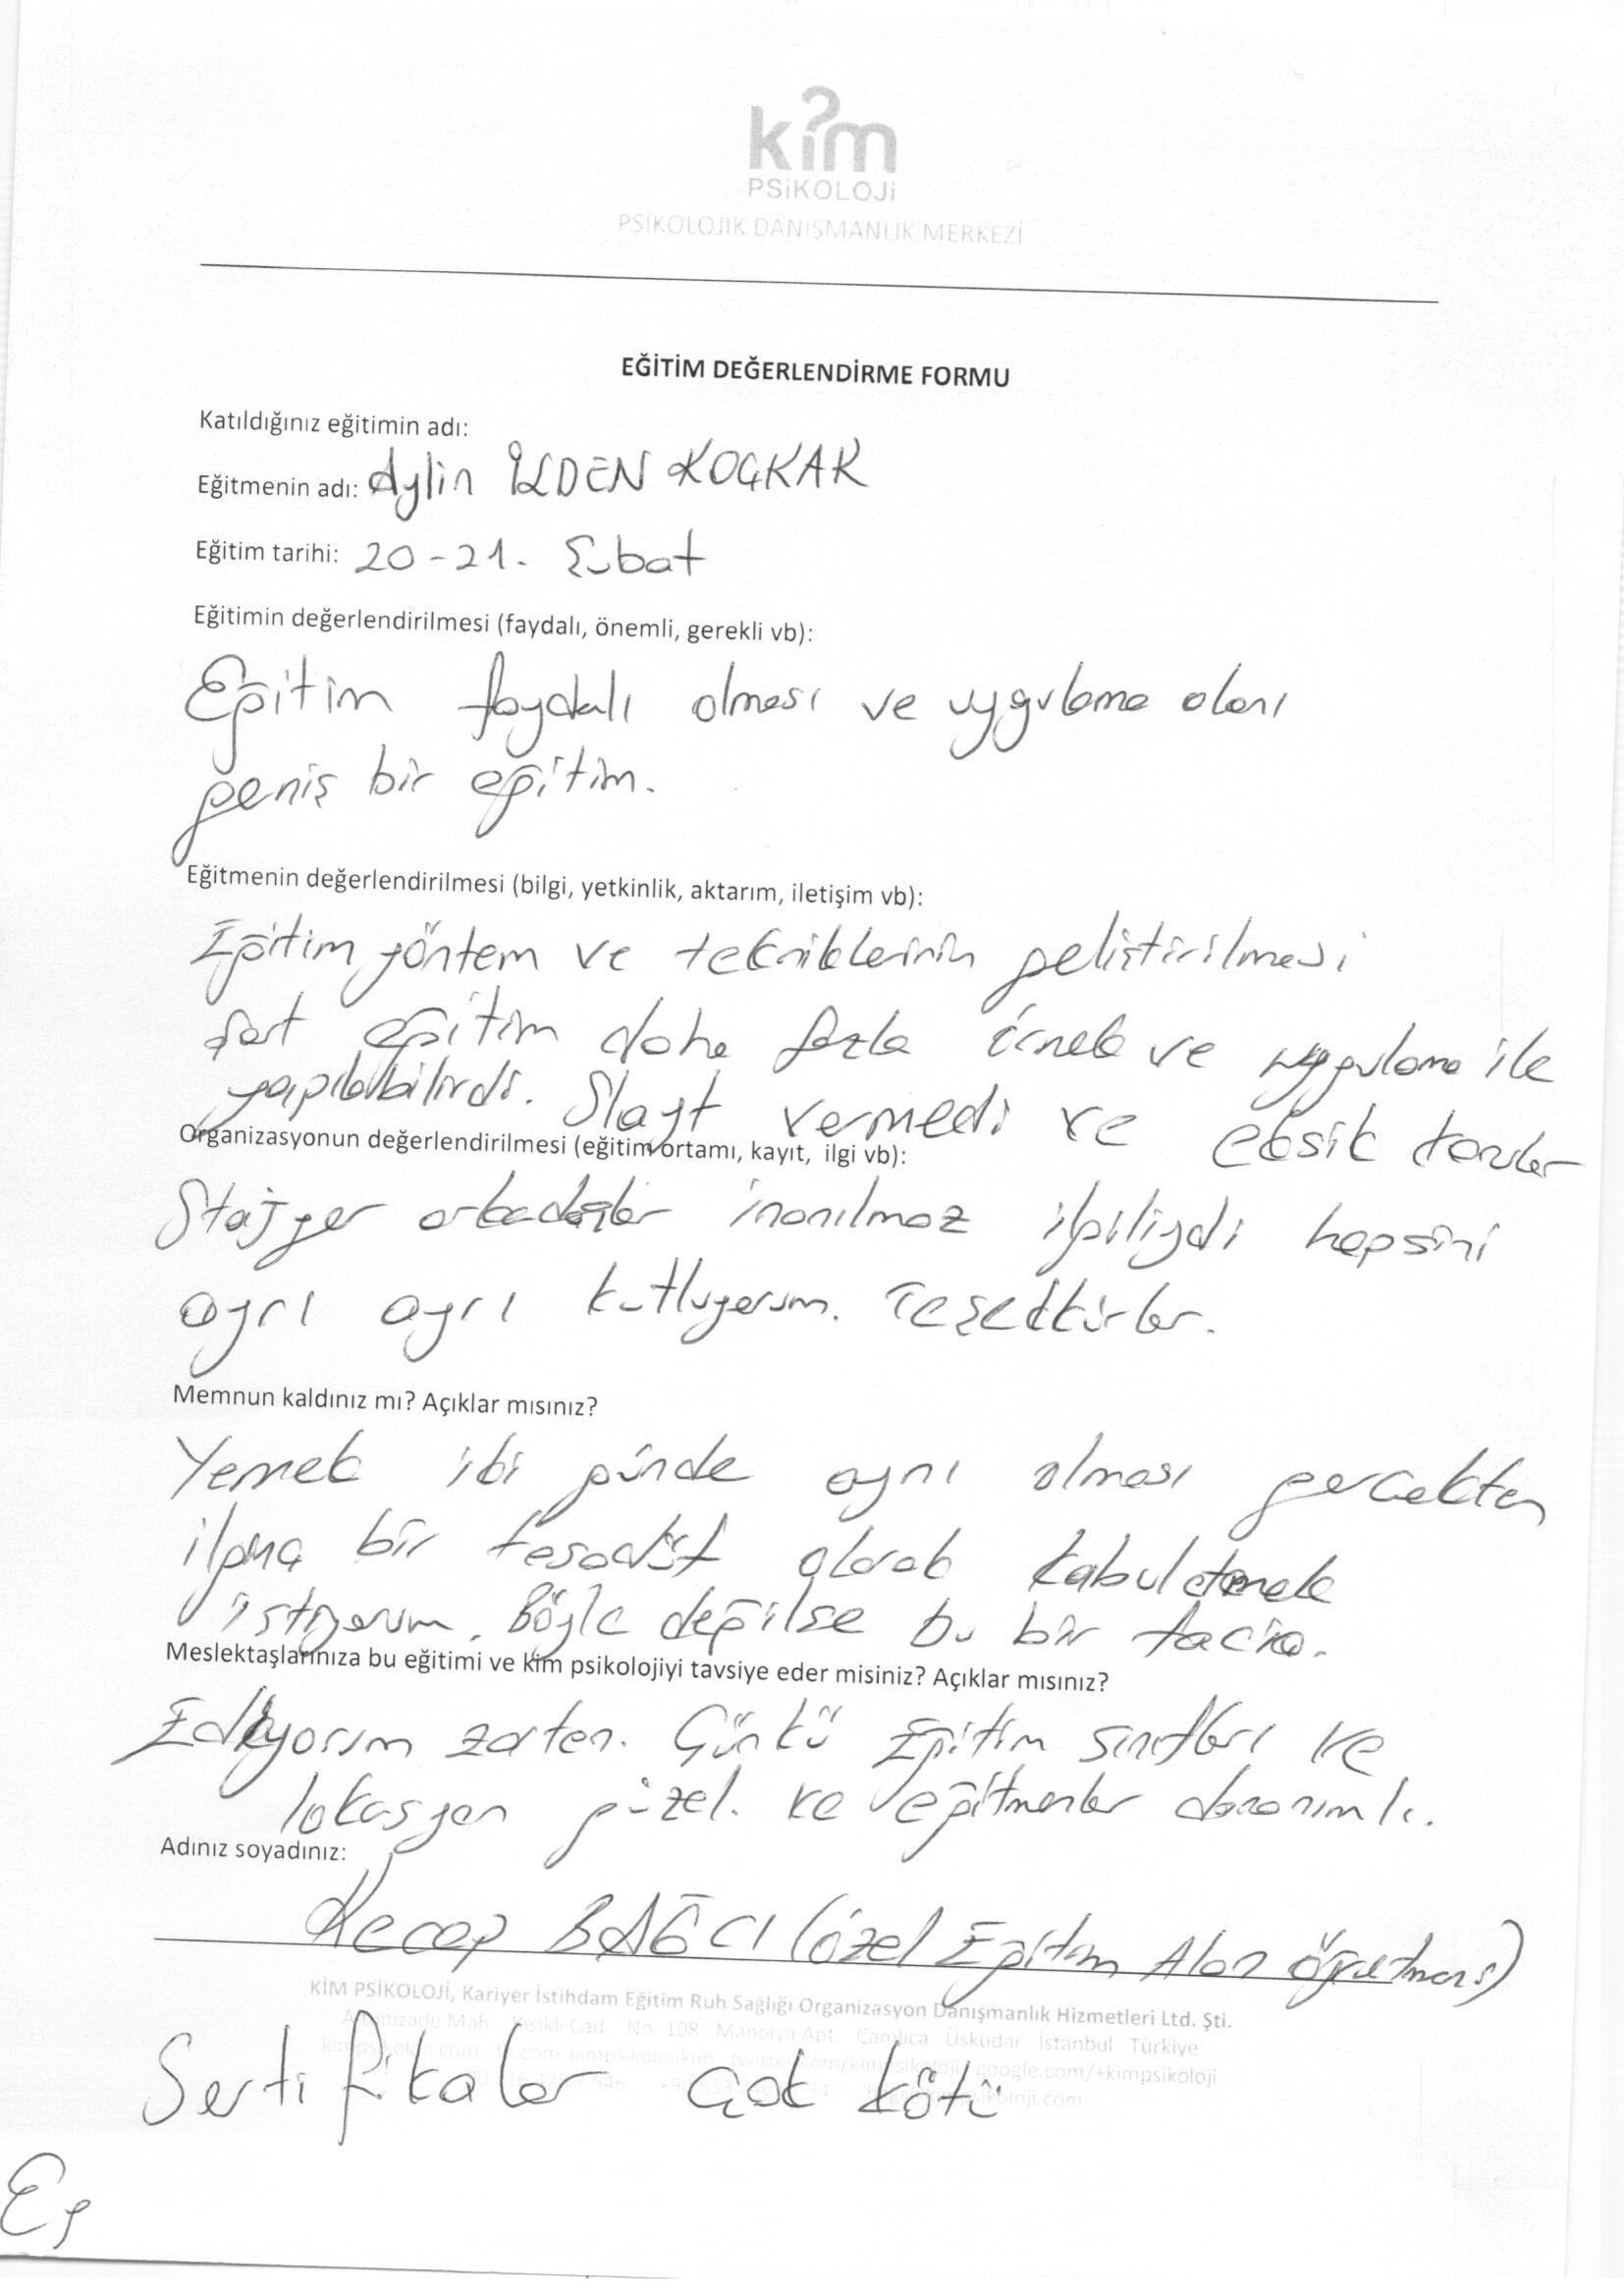 kim
PSiKOLOJi
PSİKOLOJİK DANIŞMANLIK MERKEZİ
EĞİTİM DEĞERLENDİRME FORMU
Katıldığınız eğitimin adı:
Eğitmenin adı: Aylin İLDEN KOÇKAR
Eğitim tarihi: 20-21. Şubat
Eğitimin değerlendirilmesi (faydalı, önemli, gerekli vb):
Eğitim faydalı olması ve uygulama alanı
geniş bir eğitim.
Eğitmenin değerlendirilmesi (bilgi, yetkinlik, aktarım, iletişim vb):
Eğitim yöntem ve tekniklerinin geliştirilmesi
şart eğitim daha fazla örnek ve uygulama ile
yapılabilirdi. Slayt vermedi ve eksik
Organizasyonun değerlendirilmesi (eğitim ortamı, kayıt, ilgi vb):
Stajyer arkadaşlar inanılmaz ilgiliydi hepsini
ayrı ayrı kutluyorum. Teşekkürler.
Memnun kaldınız mı? Açıklar mısınız?
Yemek iki günde aynı olması gerçekten
ilginç bir tesadüf olarak kabul etmek
istiyorum. Böyle değilse bu bir facia.
Meslektaşlarınıza bu eğitimi ve kim psikolojiyi tavsiye eder misiniz? Açıklar mısınız?
Ediyorum zaten. Çünkü Eğitim sınıfları ve
lokasyon güzel. ve eğitmenler donanımlı.
Adınız soyadınız:
Recep BAĞCI (özel Eğitim Alan Öğretmeni)
KİM PSİKOLOJİ, Kariyer İstihdam Eğitim Ruh Sağlığı Organizasyon Danışmanlık Hizmetleri Ltd. Şti.
Mah. Kısıklı Cad No: 108 Manolya Apt. Çamlıca Üsküdar İstanbul Türkiye
google.com/+kimpsikoloji
Sertifikalar çok kötü